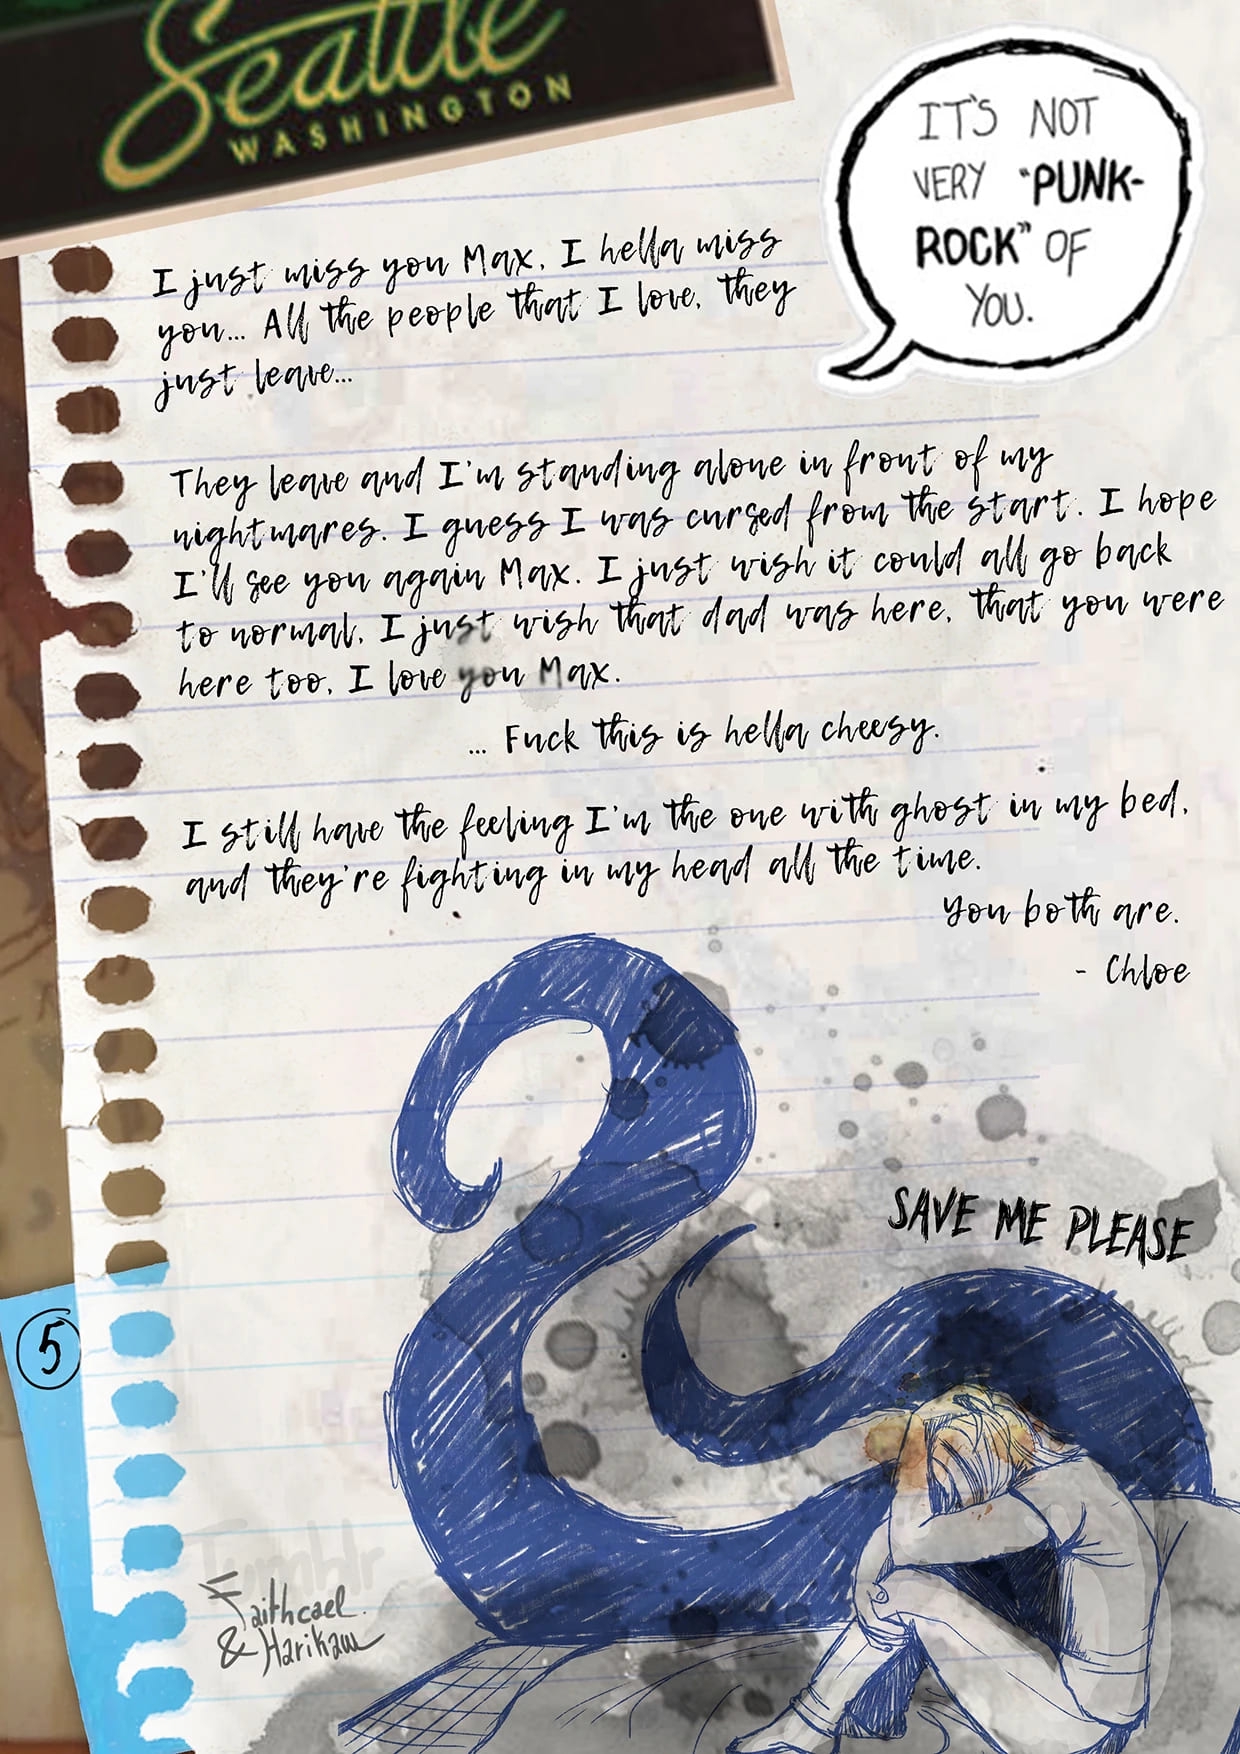 Seattle
WASHINGTON
IT'S NOT
VERY "PUNK-
ROCK" OF
YOU.
I just miss you Max, I hella miss
you... All the people that I love, they
just leave...
They leave and I'm standing alone in front of my
nightmares. I guess I was cursed from the start. I hope
I'll see you again Max. I just wish it could all go back
to normal, I just wish that dad was here, that you were
here too, I love you Max.
... Fuck this is hella cheesy.
I still have the feeling I'm the one with ghost in my bed,
and they're fighting in my head all the time.
You both are.
- Chloe
SAVE ME PLEASE
5
Tumblr
Faithcael
& Harikaw